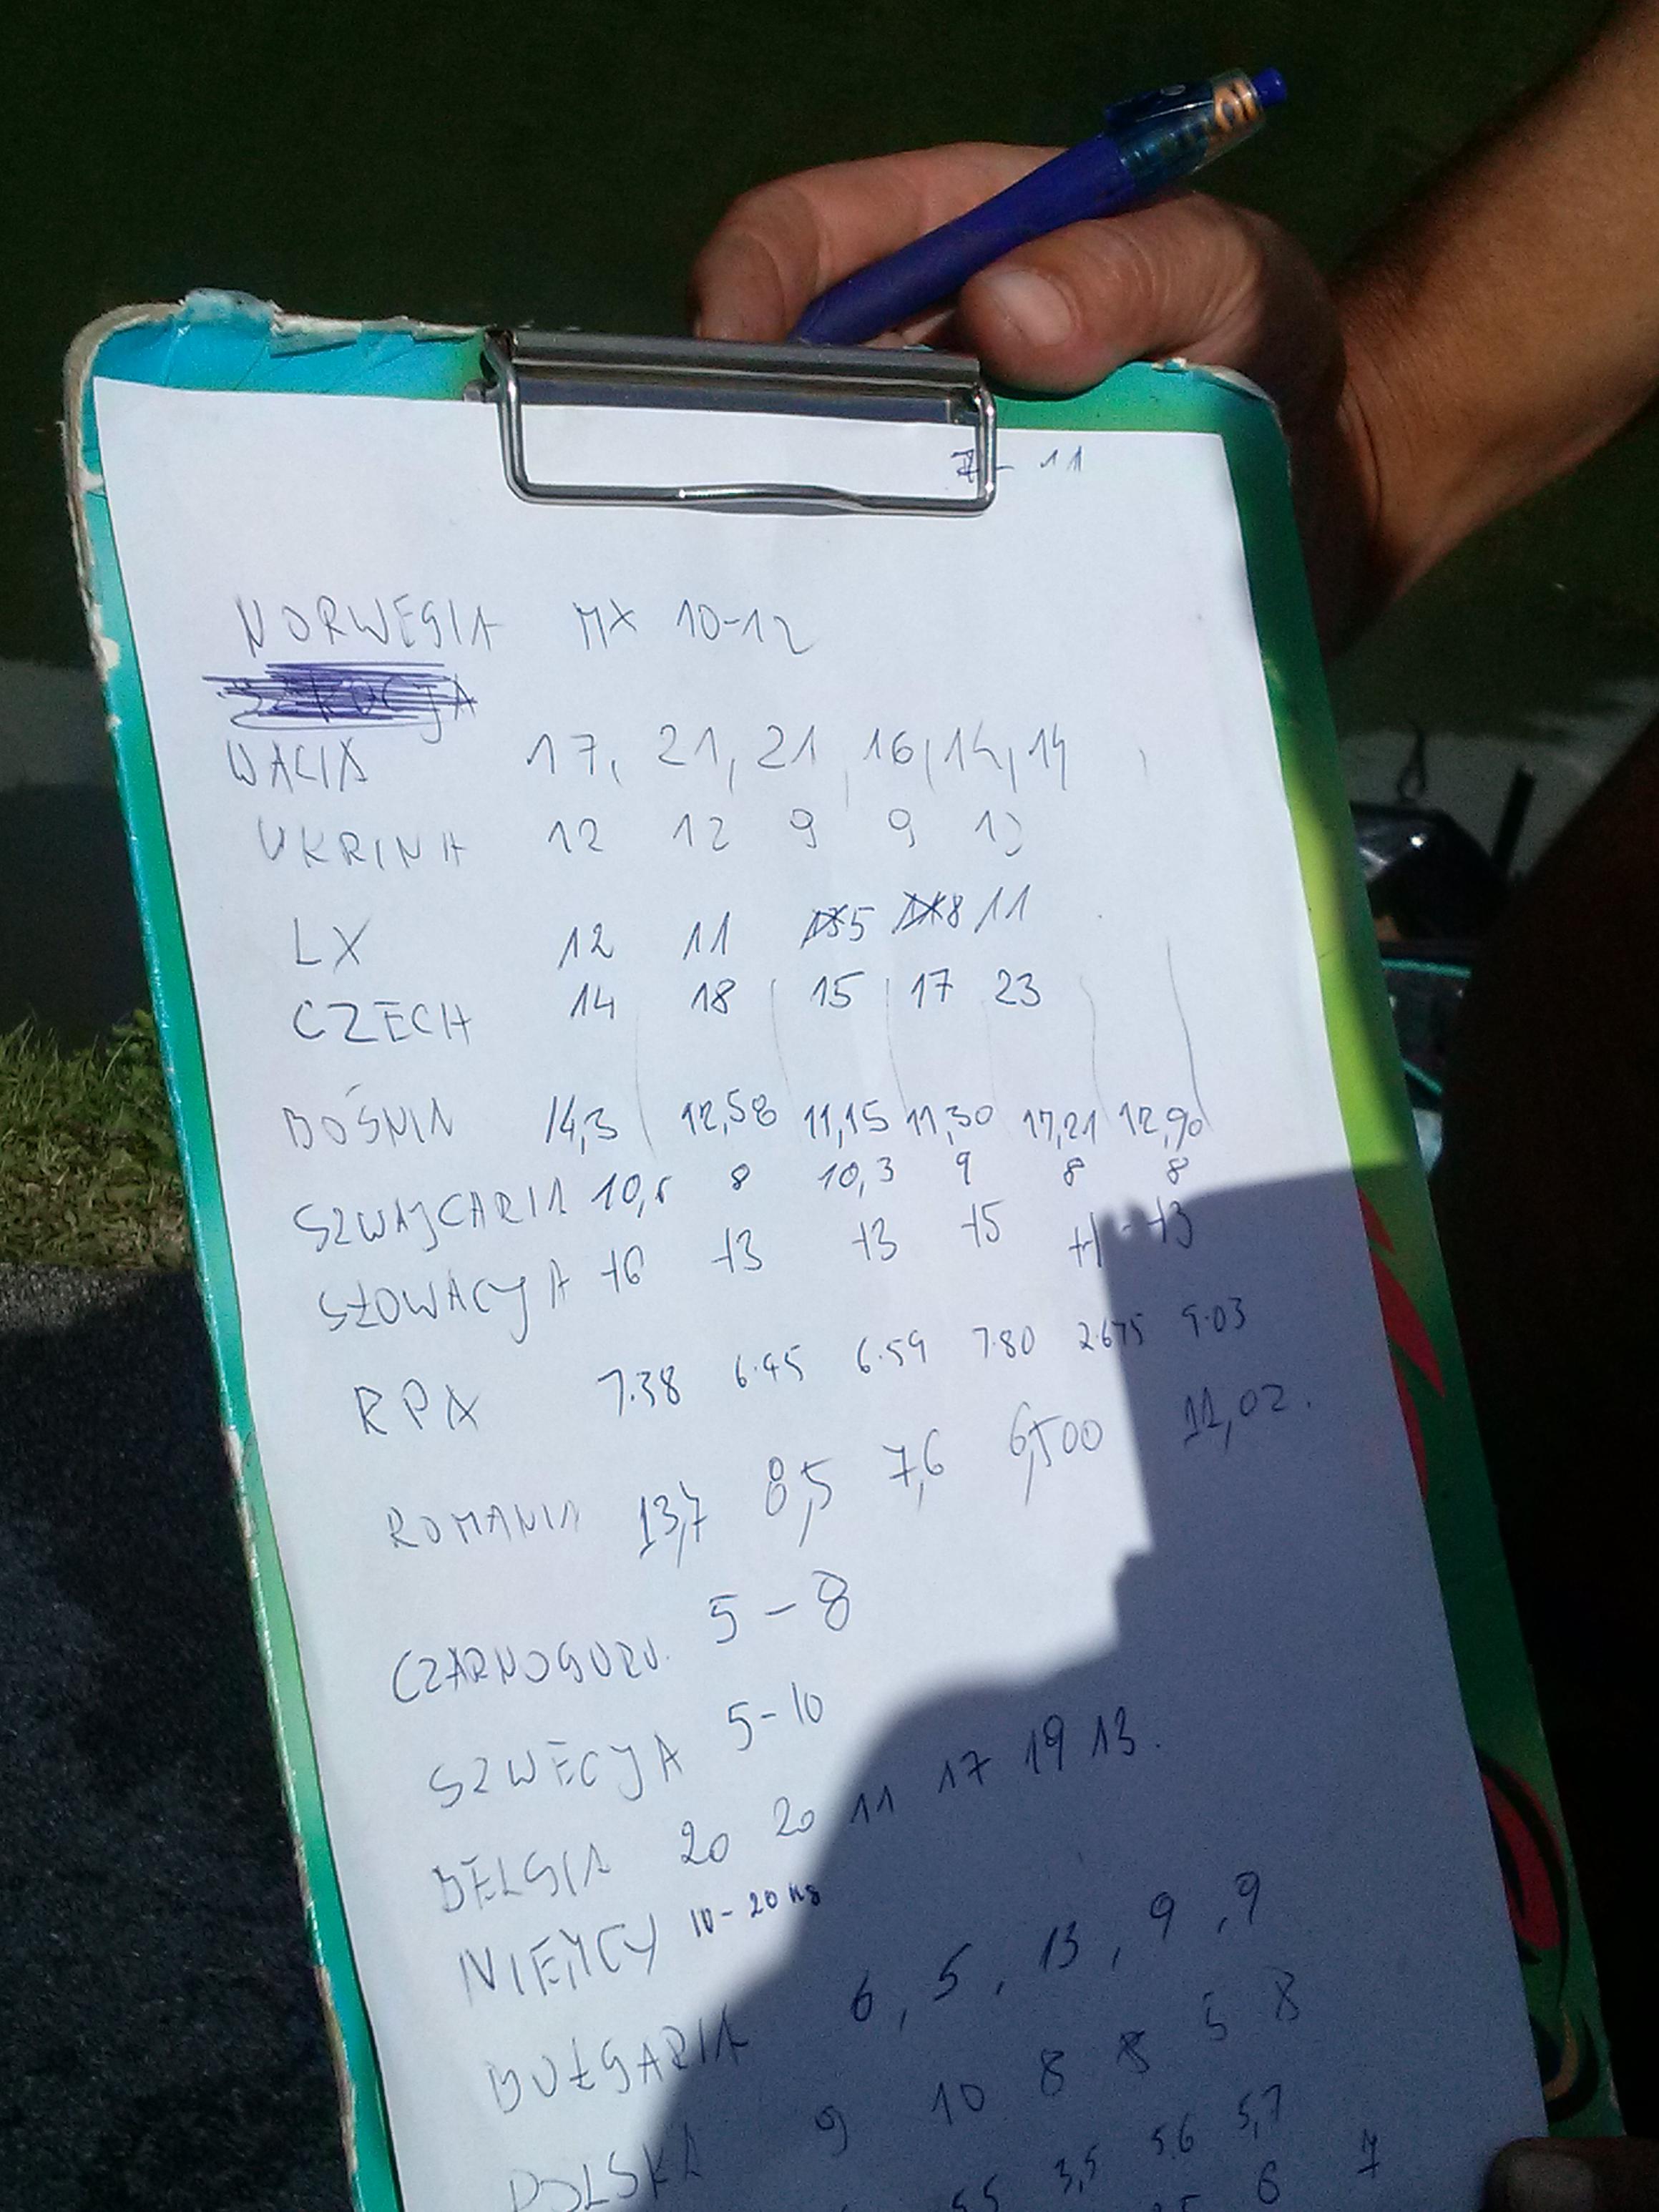 7- 11
NORWEGIA MX 10-12
WALIA 17, 21, 21, 16, 14, 14
UKRINA 12 12 9 9 13
LX 12 11 5 8 11
CZECH 14 18 15 17 23
BOŚNIA 14,3 12,58 11,15 11,30 17,21 12,90
SZWAJCARIA 10,5 8 10,3 9 8 8
SŁOWACYJA 16 13 13 15 11 - 13
RPA 7.38 6.45 6.59 7.80 2.675 9.03
ROMANIA 13,7 8,5 7,6 6,500 11,02.
CZARNOGURU. 5 - 8
SZWECJA 5-10
BELGIA 20 20 11 17 19 13.
NIEMCY 10-20 KG
BUŁGARIA 6, 5, 13, 9, 9
POLSKA 9 10 8 8 5 8
5,5 3,5 5.6 5,7
6 7